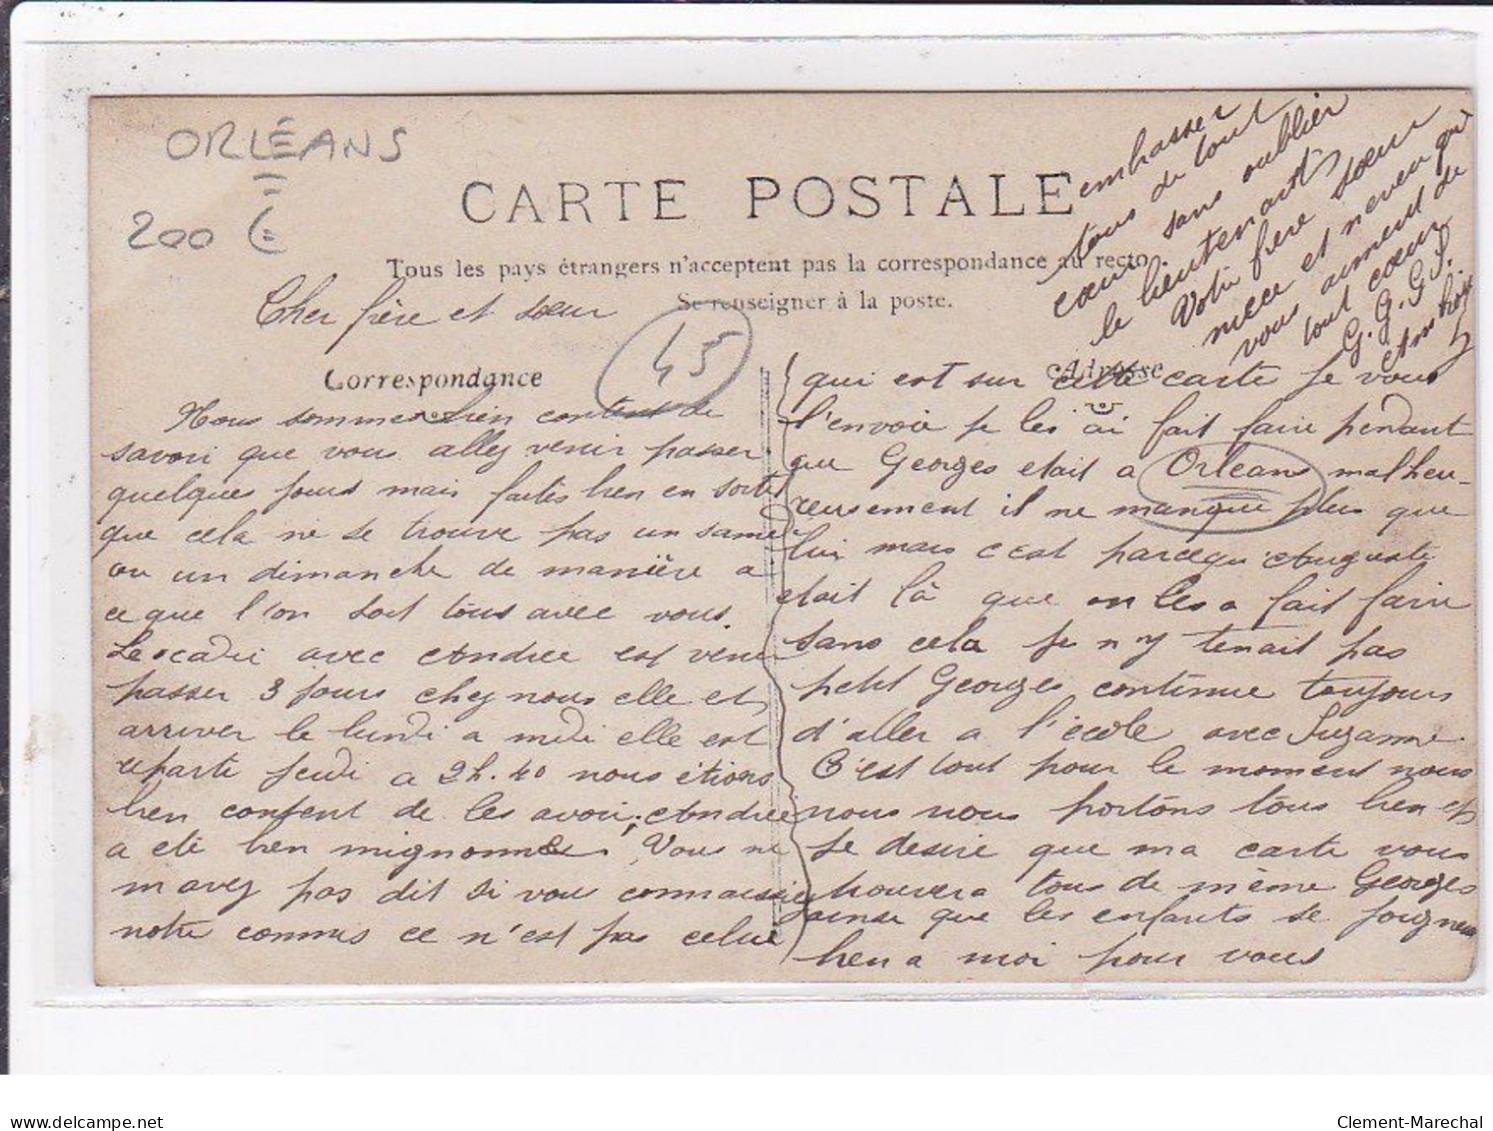 ORLÉANS
200 €
CARTE POSTALE
Tous les pays étrangers n'acceptent pas la correspondance au recto.
Se renseigner à la poste.
45
Correspondance
Adresse
Cher frère et sœur
Nous sommes bien content de
savoir que vous allez venir passer
quelques jours mais faites bien en sorte
que cela ne se trouve pas un samedi
ou un dimanche de manière a
ce que l'on soit tous avec vous.
avec Andrée est venu
passer 3 jours chez nous elle est
arriver le lundi a midi elle est
reparte jeudi a 2h.40 nous étions
bien content de les avoir, Andrée
a été bien mignonne. Vous ne
m'avez pas dit si vous connaissiez
notre commis ce n'est pas celui
qui est sur cette carte je vous
l'envoie je les ai fait faire pendant
que Georges etait a Orleans malheu-
reusement il ne manque plus que
lui mais c'est parcequ'Auguste
etait là que on les a fait faire
sans cela je n'y tenait pas
petit Georges continue toujours
d'aller a l'école avec Suzanne.
C'est tout pour le moment nous
nous nous portons tous bien et
je desire que ma carte vous
trouvera tous de même Georges
ainsi que les enfants se joignent
bien a moi pour vous
embrasser
tous de tout
cœur sans oublier
le lieutenant
Votre frère sœur
niece et neveu qui
vous aiment de
tout cœur
G. G. G. S.
Clement-Marechal